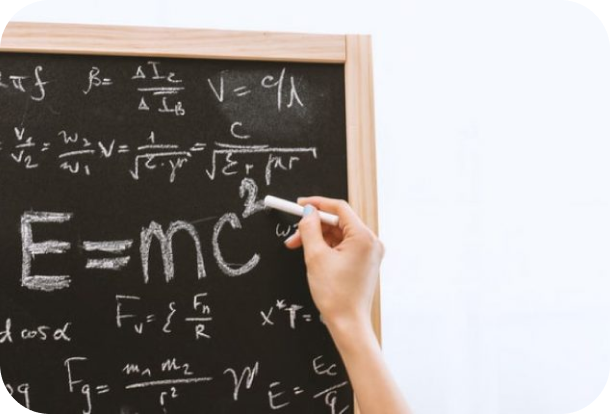 πf β= ΔIc/ΔIB V= c/λ
v1/v2 = w2/w1 V= 1/√ε·μr = c/√εr μr
E=mc²
Fv=ξ Fn/R x*T=
d cosα
Fg= m1 m2/r² M E= Ec